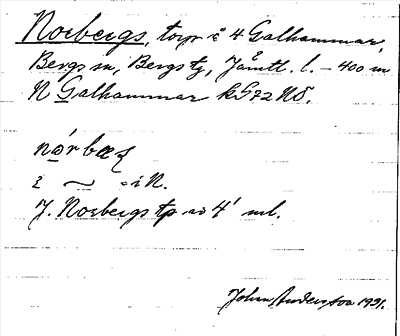 Norbergs, torp å 4 Galhammar,
Bergs sn, Bergs tg, Jämtl. l. – 400 m
N Galhammar k572 NÖ.
nørbæʃ
i ~ . i N.
J. Norbergs tp 4' ml.
John Andersson 1931.